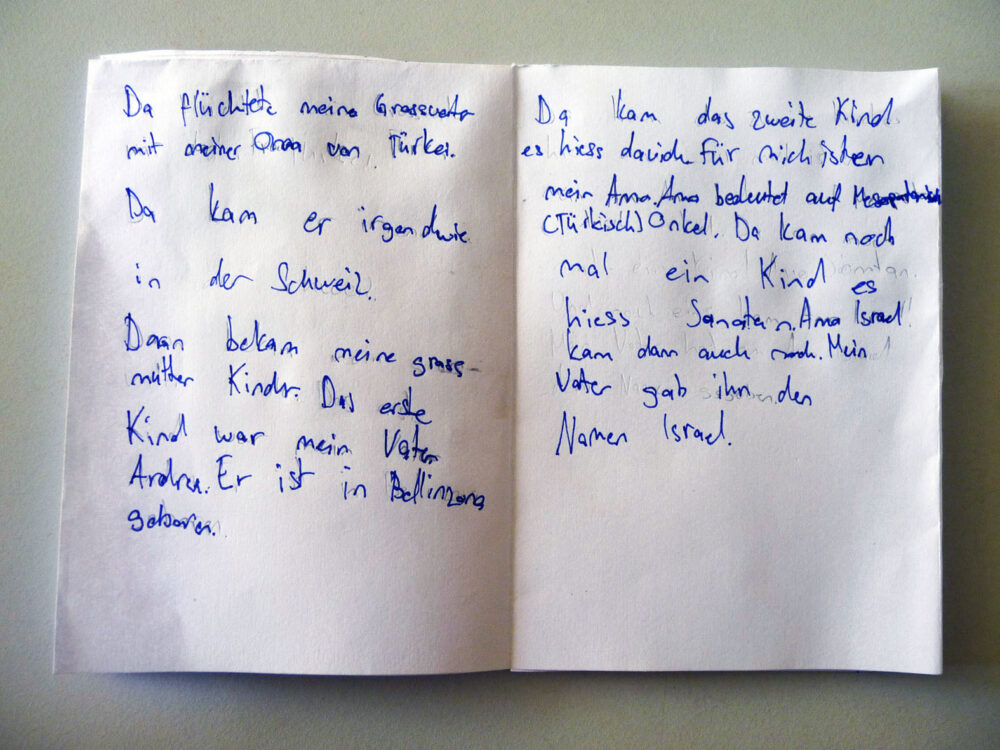 Da flüchtete meine Grossvater
mit meiner Oma von Türkei.
Da kam er irgendwie
in der Schweiz.
Dann bekam meine gross-
mutter Kinder. Das erste
Kind war mein Vater
Andrea. Er ist in Bellinzona
geboren.
Da kam das zweite Kind
es hiess davide für mich ist en
mein Amo. Amo bedeutet auf
(Türkisch) Onkel. Da kam noch
mal ein Kind es
hiess Amo Israel
kam dann auch noch. Mein
Vater gab ihn den
Namen Israel.